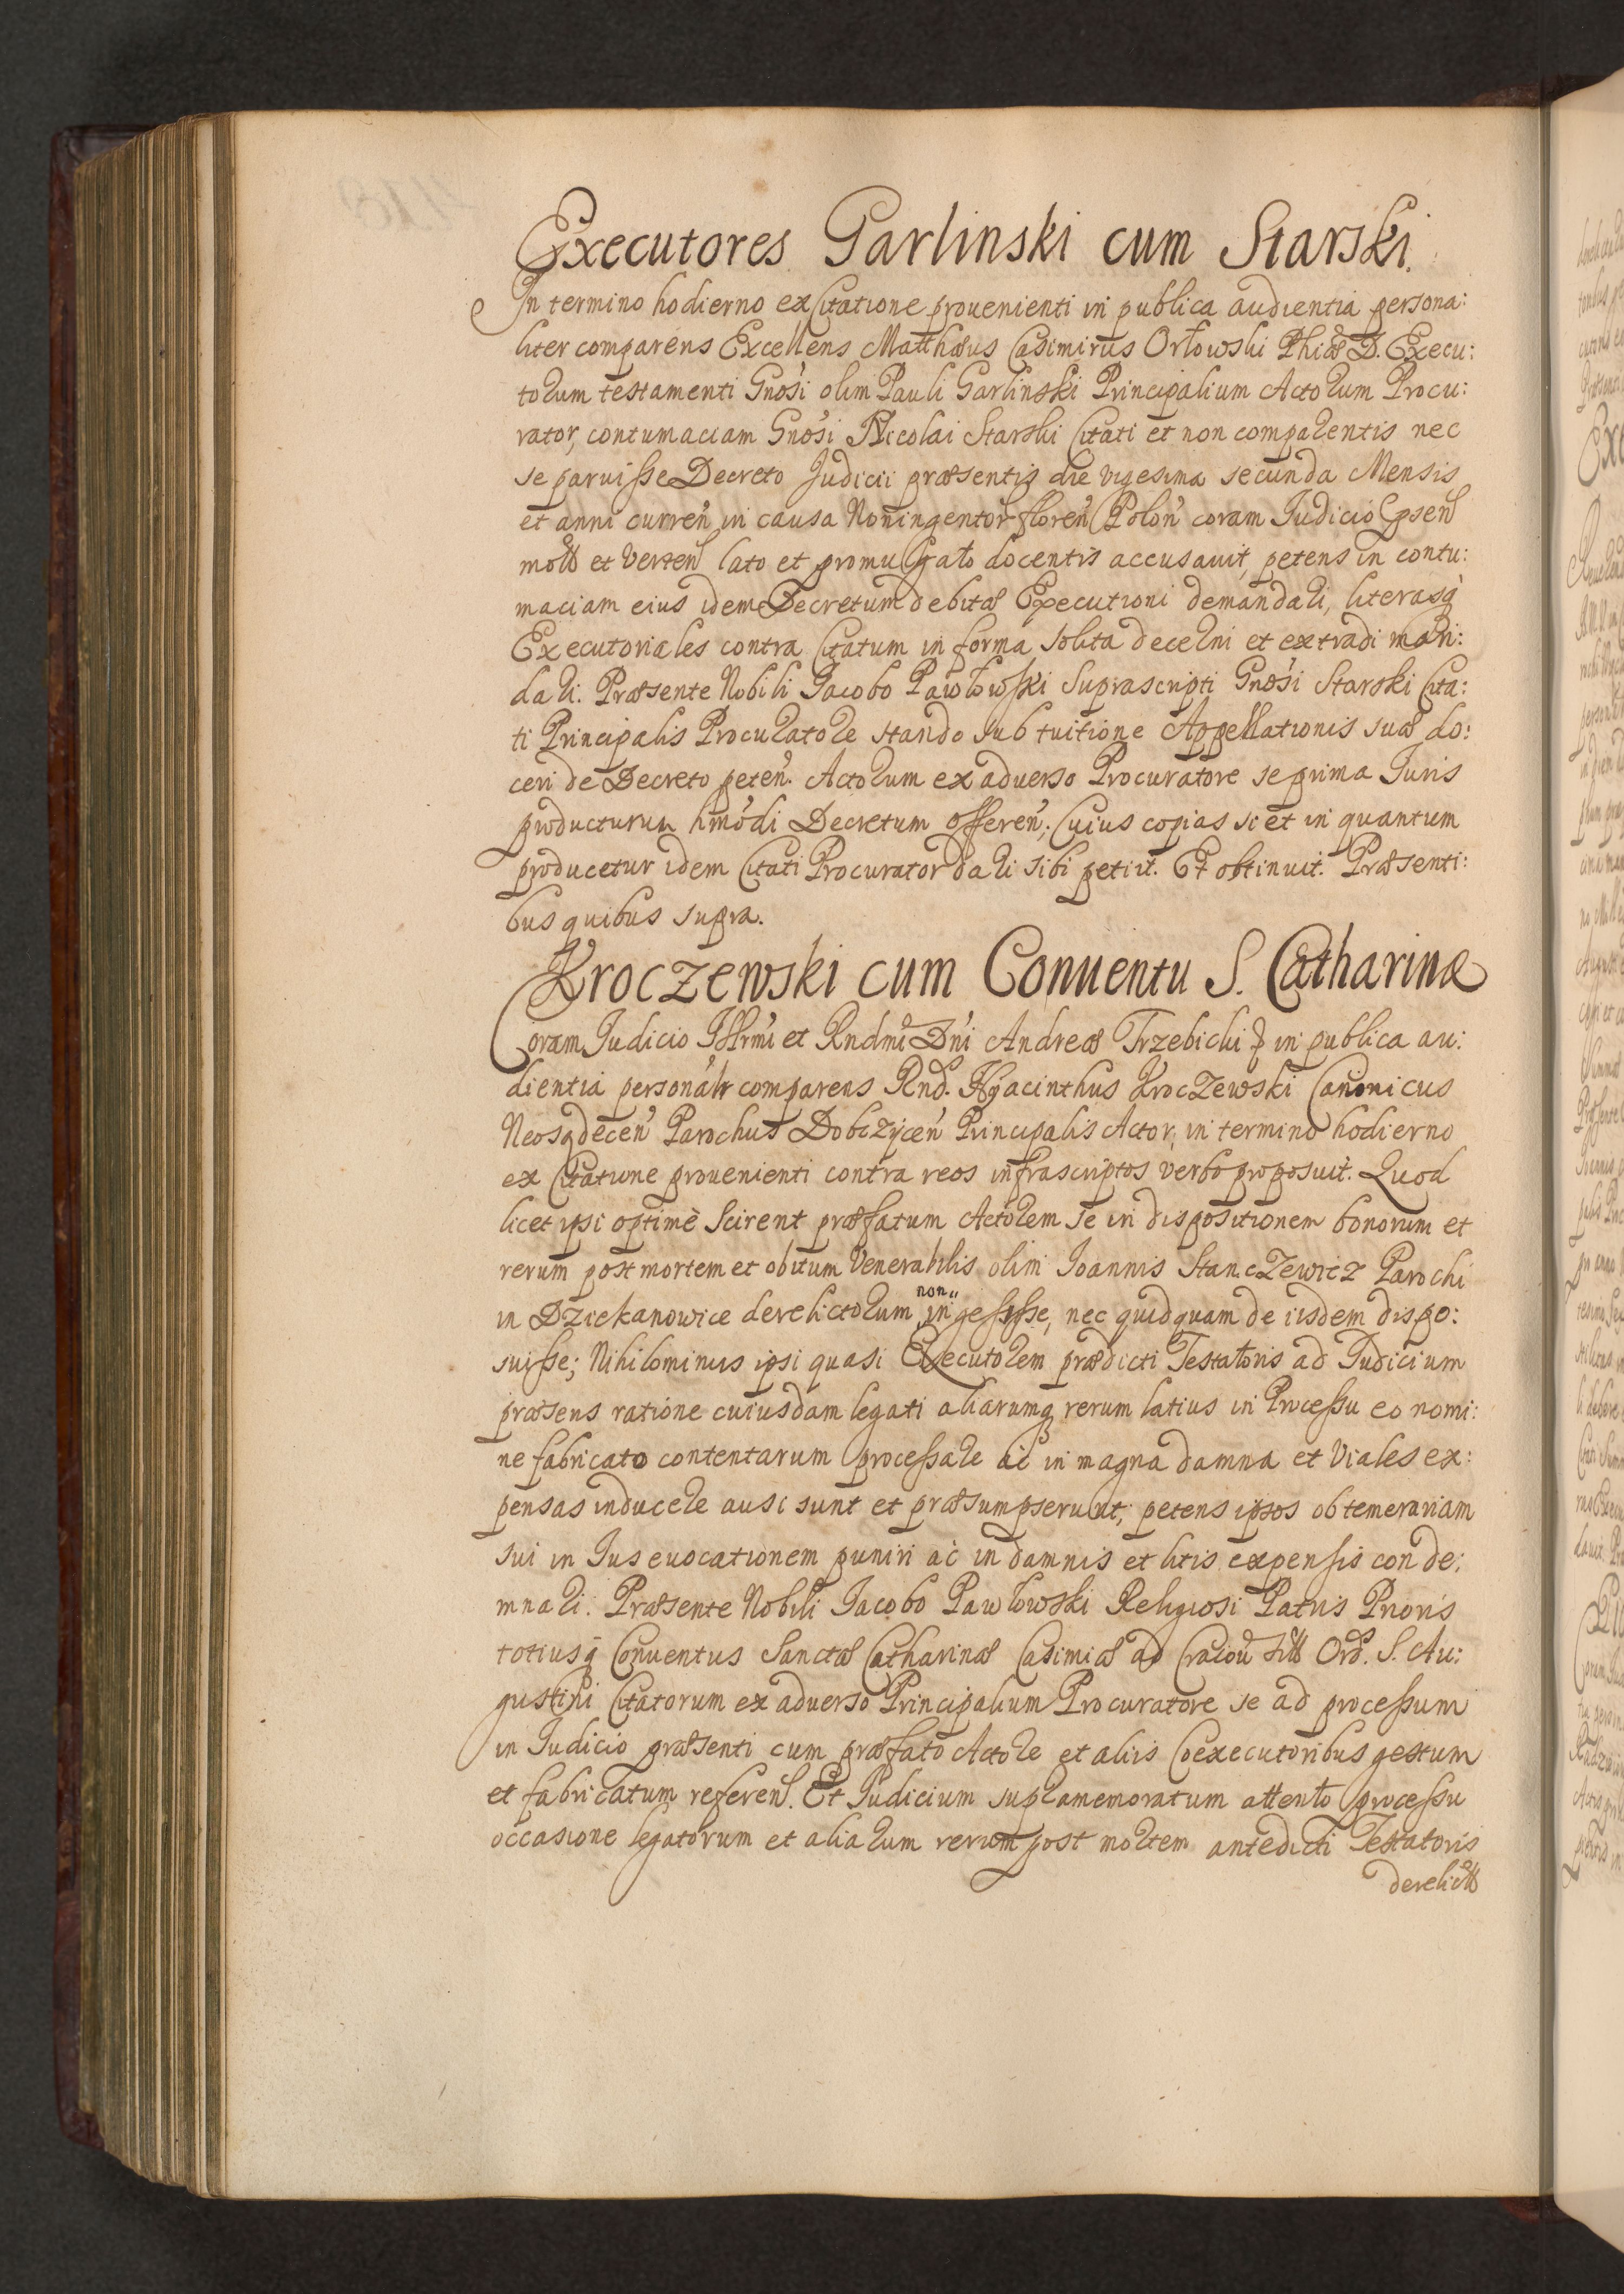 Executores Garlinski cum Starski.
In termino hodierno ex Citatione prouenienti in publica audientia persona:
liter comparens Excellens Matthæus Casimirus Orłowski Phiæ D. Execu:
torum testamenti Gnosi olim Pauli Garlinski Principalium Actorum Procu:
rator, contumaciam Gnosi Nicolai Starski Citati et non comparentis nec
se paruisse Decreto Judicii præsentis die vigesima secunda Mensis
et anni curren in causa Noningentor floren Polon coram Judicio
et verten lato et promulgato docentis accusauit, petens in contu:
maciam eius idem Decretum debitæ Executioni demandari, literasq
Executoriales contra Citatum in forma solita decerni et extradi man:
dari. Præsente Nobili Jacobo Pawłowski Suprascripti Gnosi Starski Cita:
ti Principalis Procuratore stando sub tuitione Appellationis suæ do:
ceri de Decreto peten. Actorum ex aduerso Procuratore se prima Juris
producturum hmodi Decretum offeren; Cuius copias si et in quantum
producetur idem Citati Procurator dari sibi petiit. Et obtinuit. Præsenti:
bus quibus supra.
Kroczewski cum Conuentu S. Catharinæ
Coram Judicio Illrmi et Rndmi Dni Andreæ Trzebicki & in publica au:
dientia personalr comparens Rnd. Hyacinthus Kroczewski Canonicus
Neosądecen Parochus Dobczycen Principalis Actor, in termino hodierno
ex Citatione prouenienti contra reos infrascriptos verbo proposuit. Quod
licet ipsi optimè scirent præfatum Actorem se in dispositionem bonorum et
rerum post mortem et obitum Venerabilis olim Joannis Stanczewicz Parochi
in Dziekanowice derelictorum non ingessisse, nec quidquam de iisdem dispo:
suisse; Nihilominus ipsi quasi Executorem prædicti Testatoris ad Judicium
præsens ratione cuiusdam legati aliarumq rerum latius in Processu eo nomi:
ne fabricato contentarum processare ac in magna damna et Viales ex:
pensas inducere ausi sunt et præsumpserunt, petens ipsos ob temerariam
sui in Jus euocationem puniri ac in damnis et litis expensis conde:
mnari. Præsente Nobili Jacobo Pawłowski Religiosi Patris Prioris
totiusq Conuentus Sanctæ Catharinæ Casimiæ ad Cracou Ord. S. Au:
gustini Citatorum ex aduerso Principalium Procuratore se ad processum
in Judicio præsenti cum præfato Actore et aliis Coexecutoribus gestum
et fabricatum referen. Et Judicium supramemoratum attento processu
occasione legatorum et aliarum rerum post mortem antedicti Testatoris
derelict